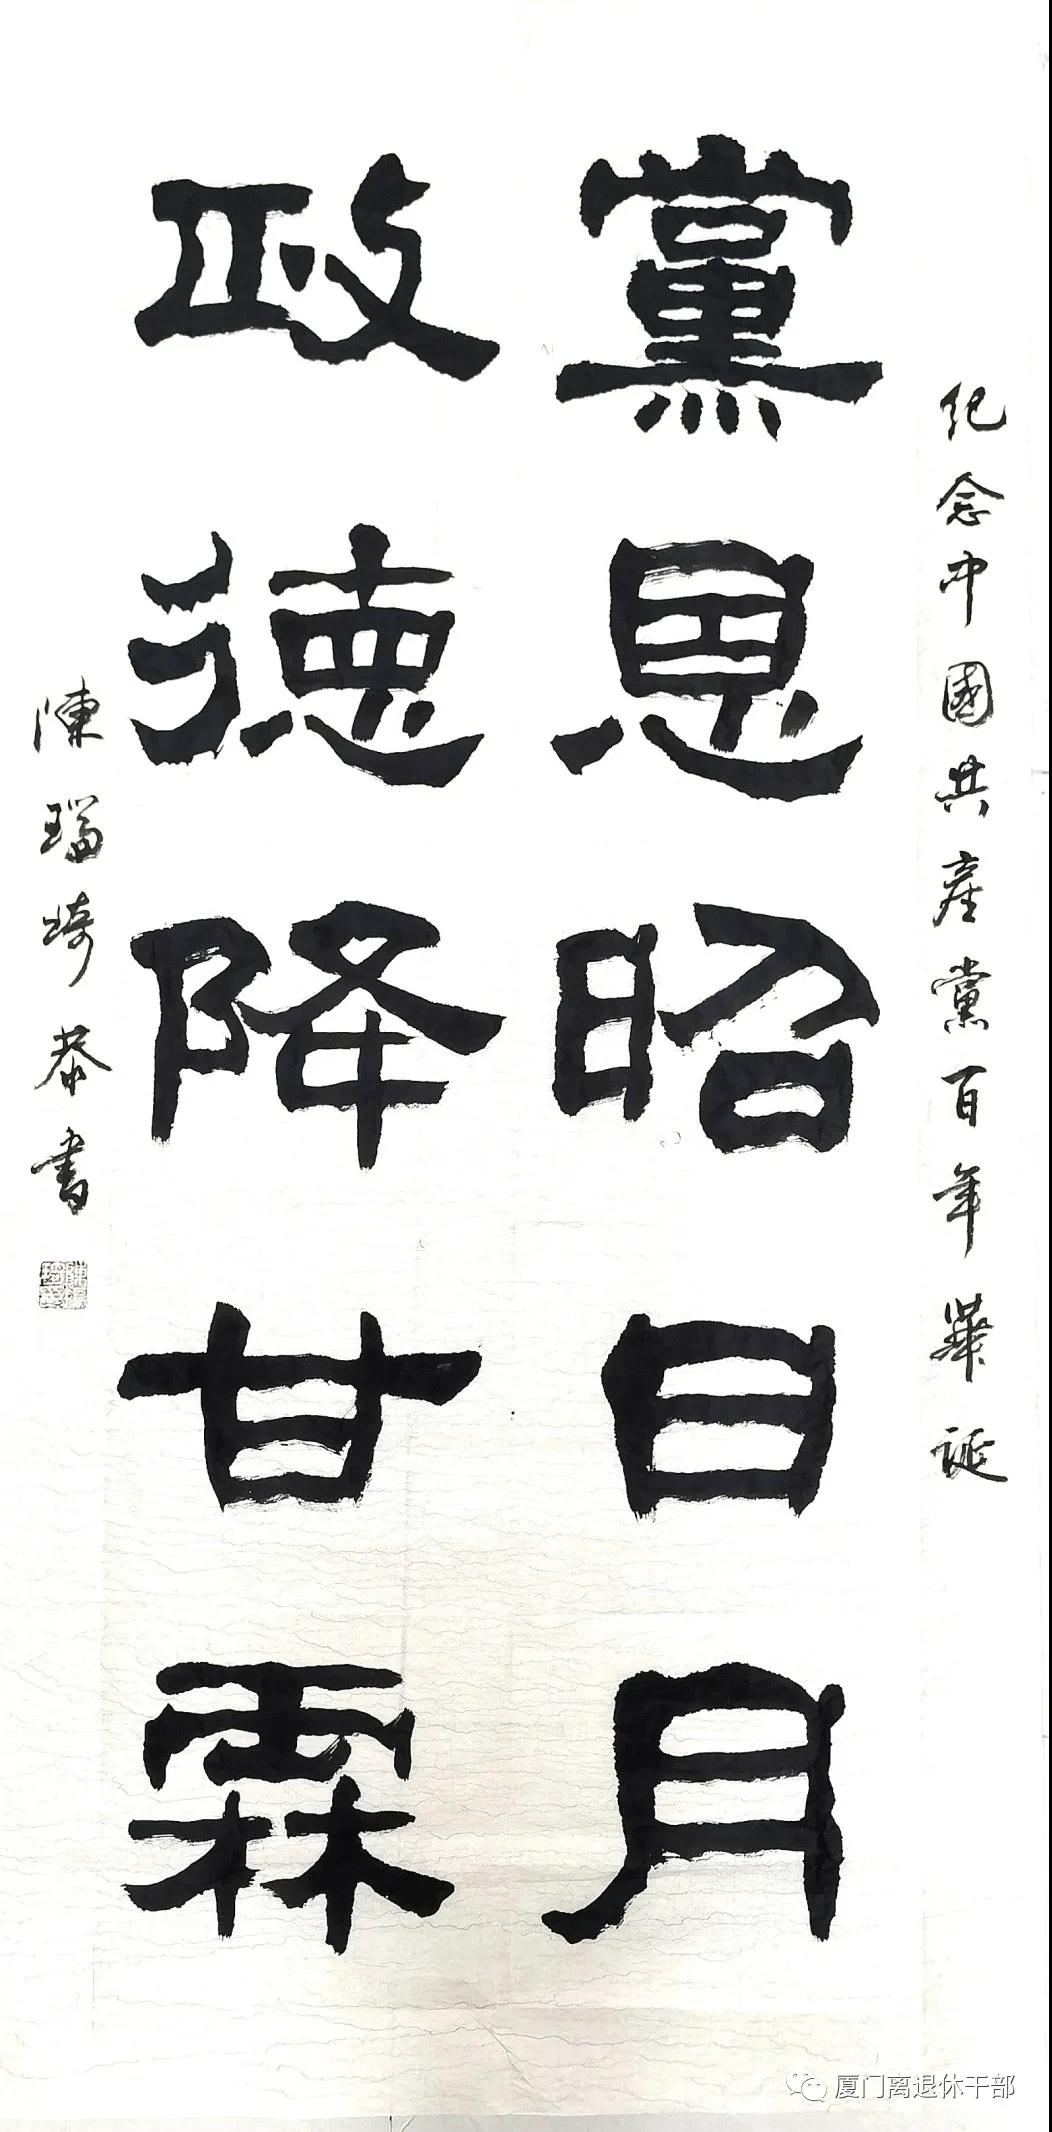 紀念中國共產黨百年華誕
黨恩昭日月
政德降甘霖
陳瑞琦恭書
厦门离退休干部